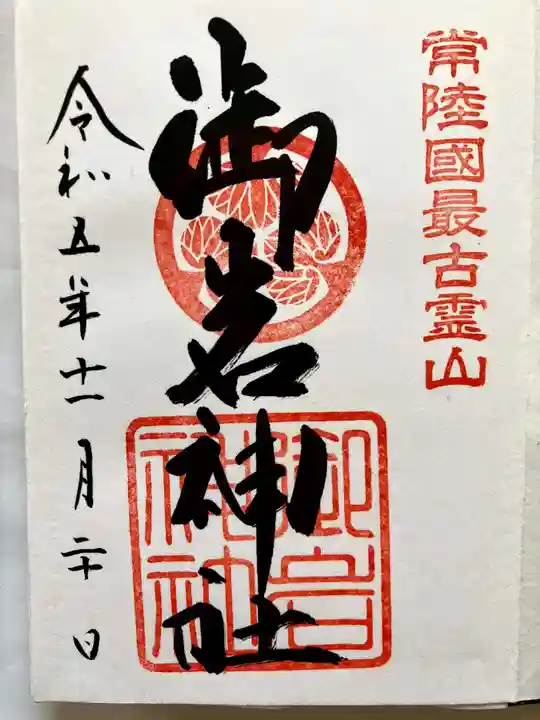 常陸國最古霊山
御岩神社
御岩
神社
令和五年十一月二十日